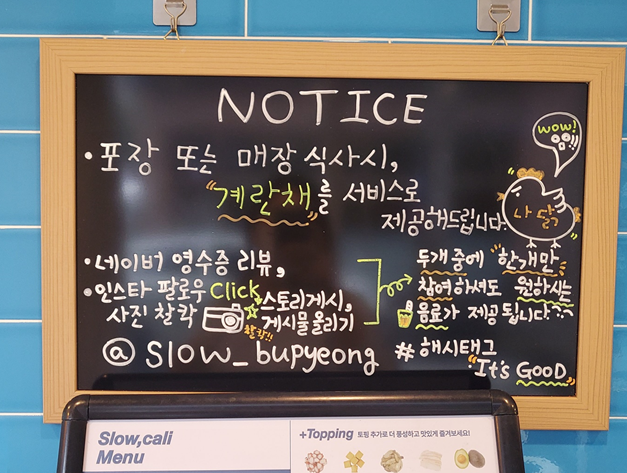 NOTICE
wow!
· 포장 또는 매장 식사시,
"계란채"를 서비스로
제공해드립니다.
나 닭
· 네이버 영수증 리뷰,
· 인스타 팔로우 Click
사진 찰칵
찰칵!!
스토리게시,
게시물 올리기
두개 중에 "한개만"
참여하셔도 원하시는
음료가 제공 됩니다.^^
@ Slow_bupyeong
# 해시태그
"It's GooD"
Slow,cali
Menu
+Topping 토핑 추가로 더 풍성하고 맛있게 즐겨보세요!